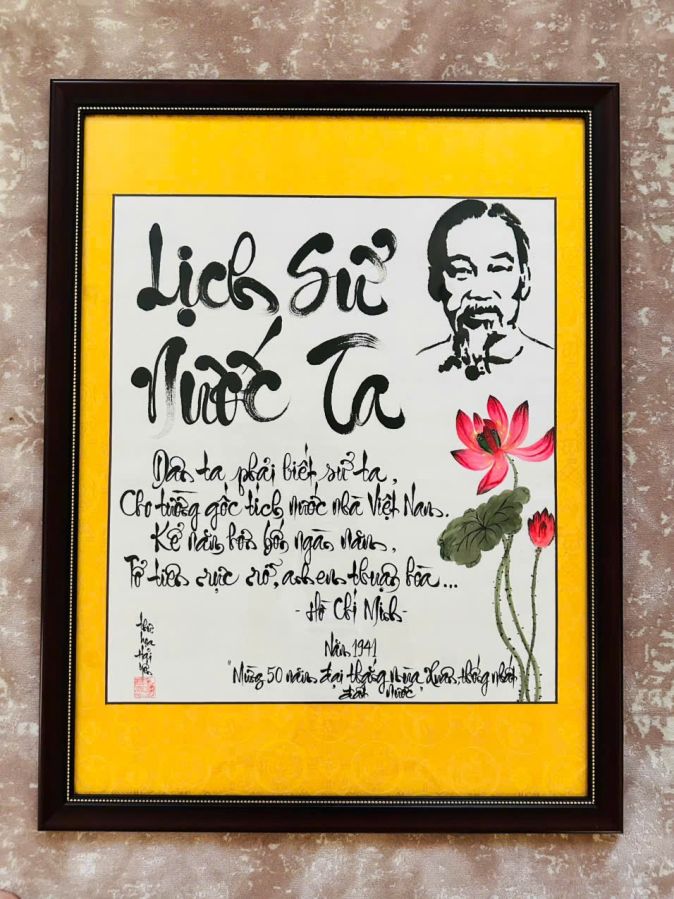 Lịch Sử
Nước Ta
Dân ta phải biết sử ta,
Cho tường gốc tích nước nhà Việt Nam.
Kể năm hơn bốn ngàn năm,
Tổ tiên rực rỡ, anh em thuận hòa...
- Hồ Chí Minh -
Năm 1941
"Mừng 50 năm đại thắng mùa Xuân, thống nhất
đất nước"
thư
họa
Hải